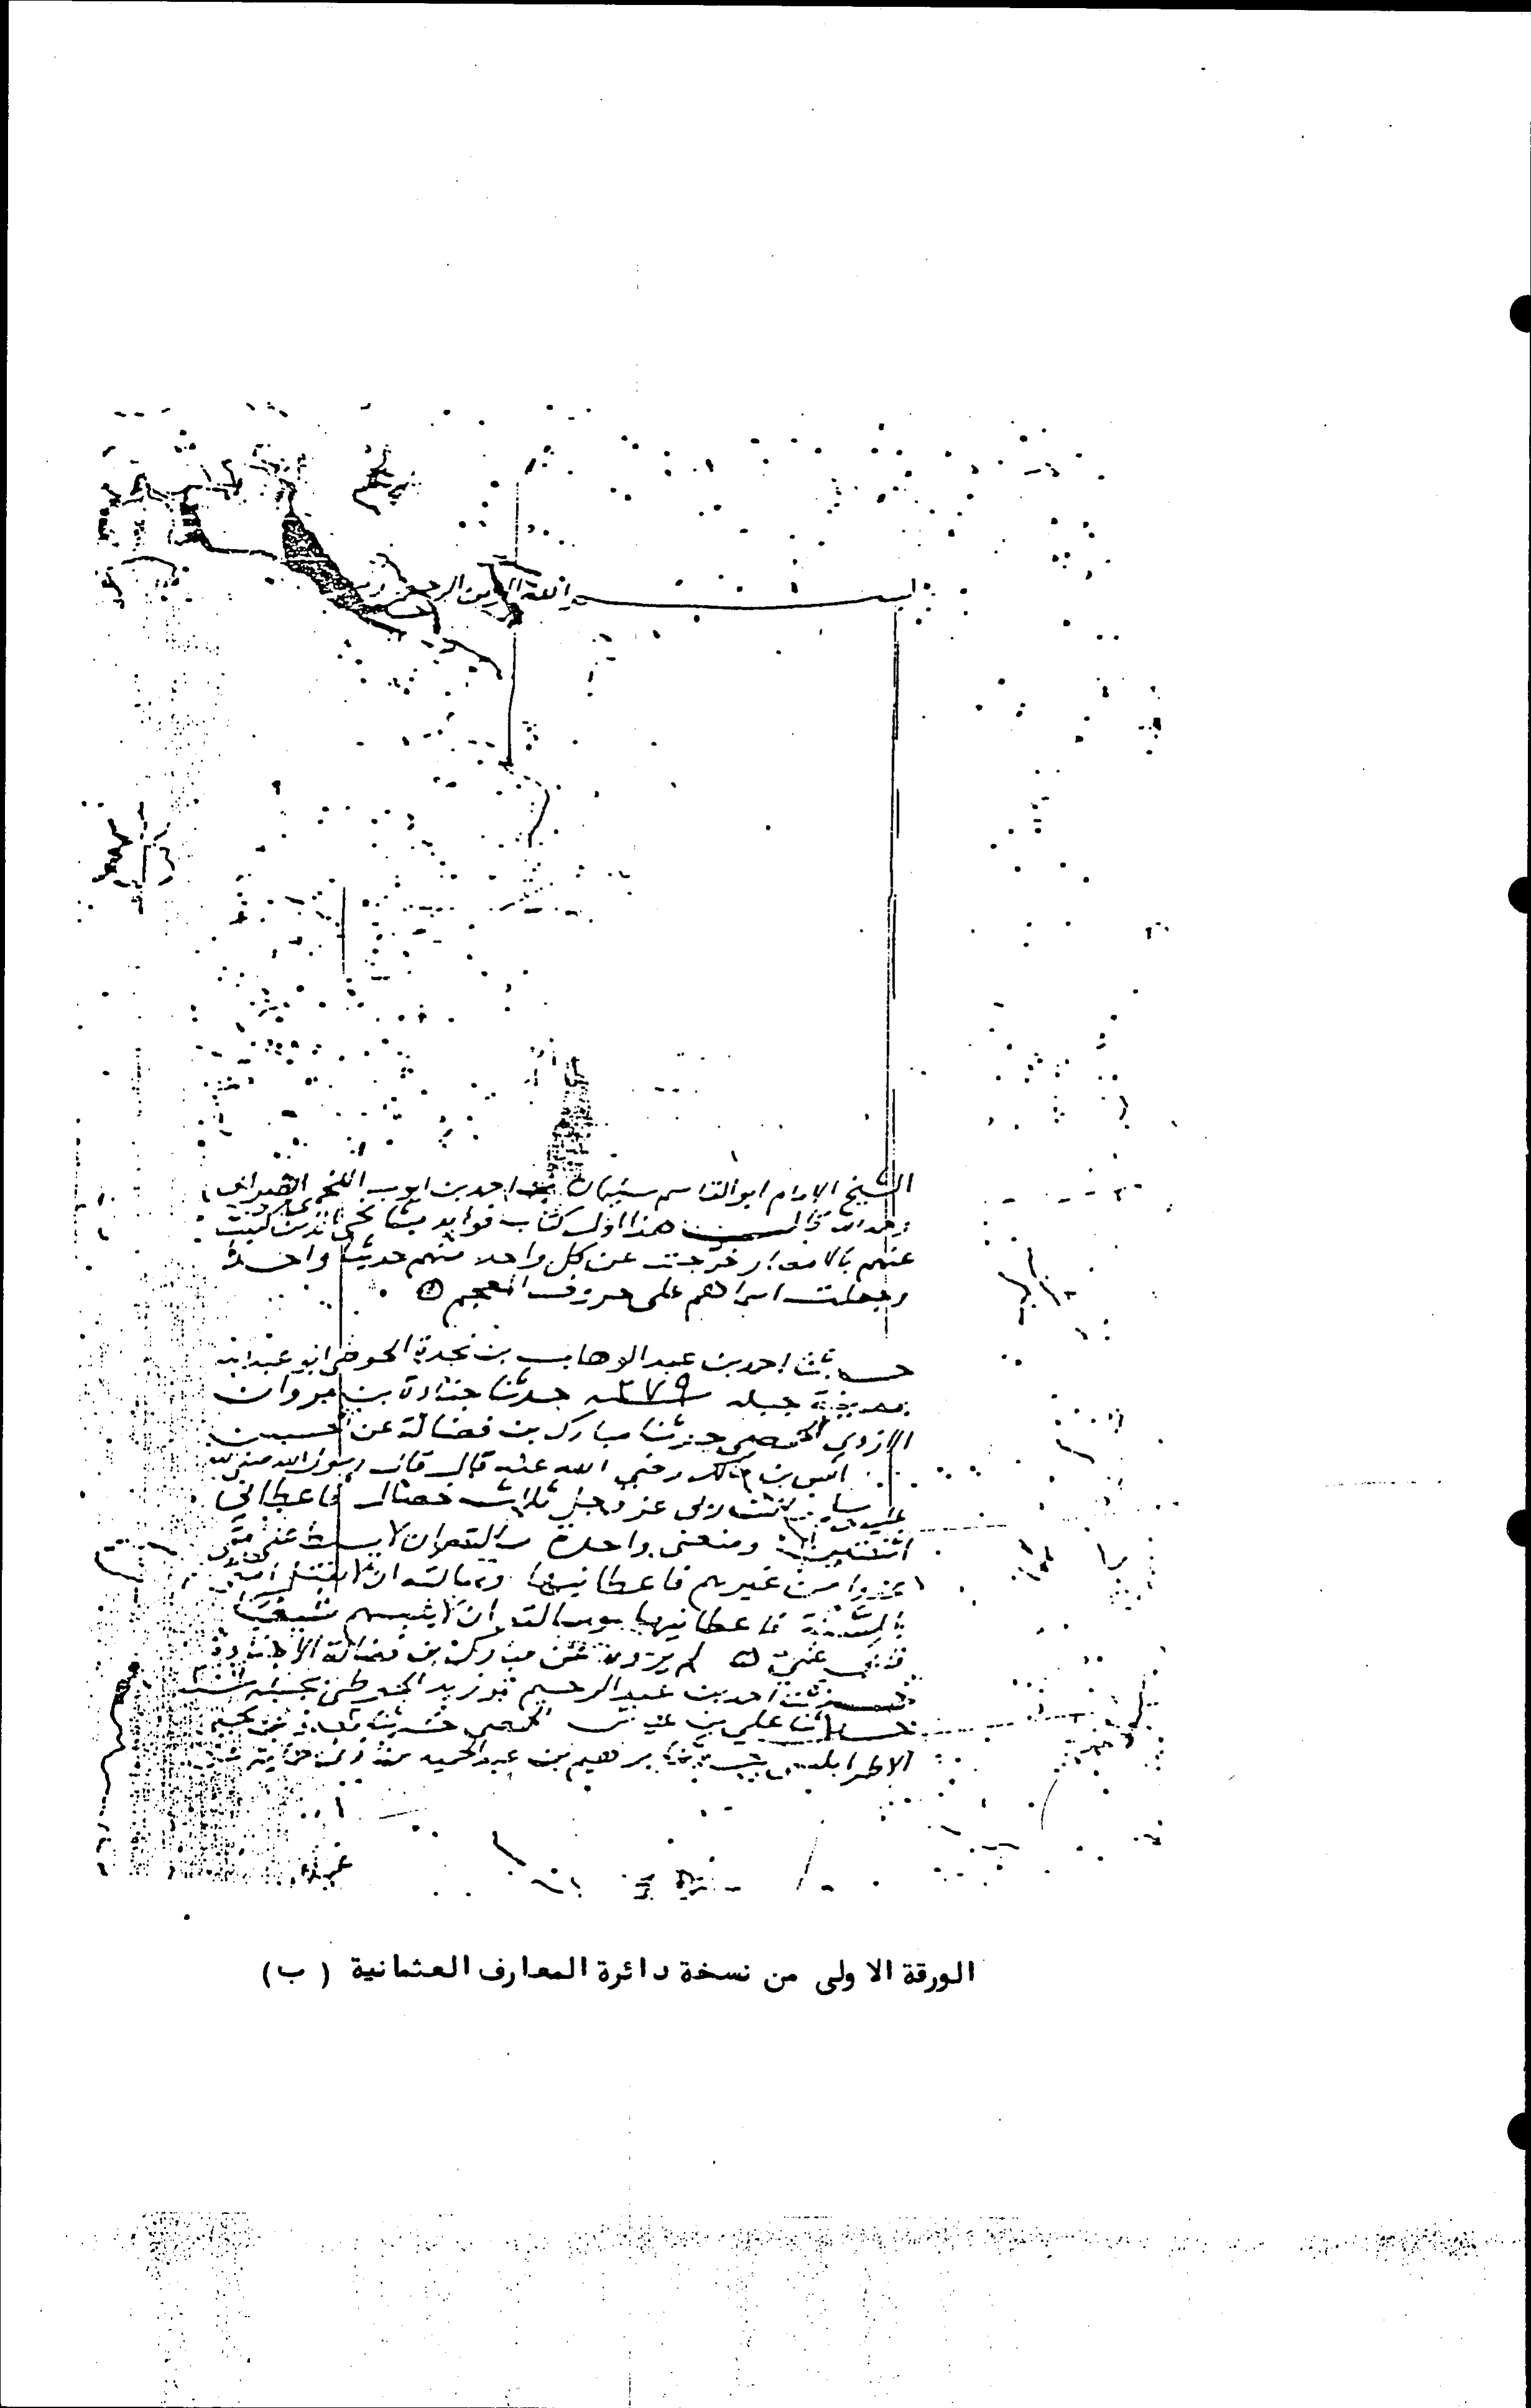 بسم الله الرحمن الرحيم
الشيخ الامام ابو القاسم سليمان بن احمد بن ايوب اللخمي الطبراني
رحمه الله قال هذا اول كتاب فوايد مشايخي الذين كتبت
عنهم بالامصار خرجت عن كل واحد منهم حديثا واحدا
وجعلت اسماءهم على حروف المعجم
حدثنا احمد بن عبد الوهاب بن نجدة الحوطي ابو عبد الله
بمدينة جبلة سنة ٢٧٩ حدثنا جنادة بن مروان
الازدي الحمصي حدثنا مبارك بن فضالة عن الحسن
انس بن مالك رضي الله عنه قال قال رسول الله صلى الله
عليه وسلم سالت ربي عز وجل ثلاث خصال فاعطاني
اثنتين ومنعني واحدة سالته ان لا يسلط على امتي
عدوا من غيرهم فاعطانيها وسالته ان لا يقتل امتي
بالسنة فاعطانيها وسالته ان لا يلبسهم شيعا
فابى علي لم يروه عن مبارك بن فضالة الا جنادة
حدثنا احمد بن عبد الرحيم ابو زيد الحوطي بجبلة سنة
حدثنا علي بن عياش الحمصي حدثنا معاوية بن يحيى
الاطرابلسي حدثنا ابراهيم بن عبد الحميد بن ذي حماية
غيلان
الورقة الاولى من نسخة دائرة المعارف العثمانية (ب)